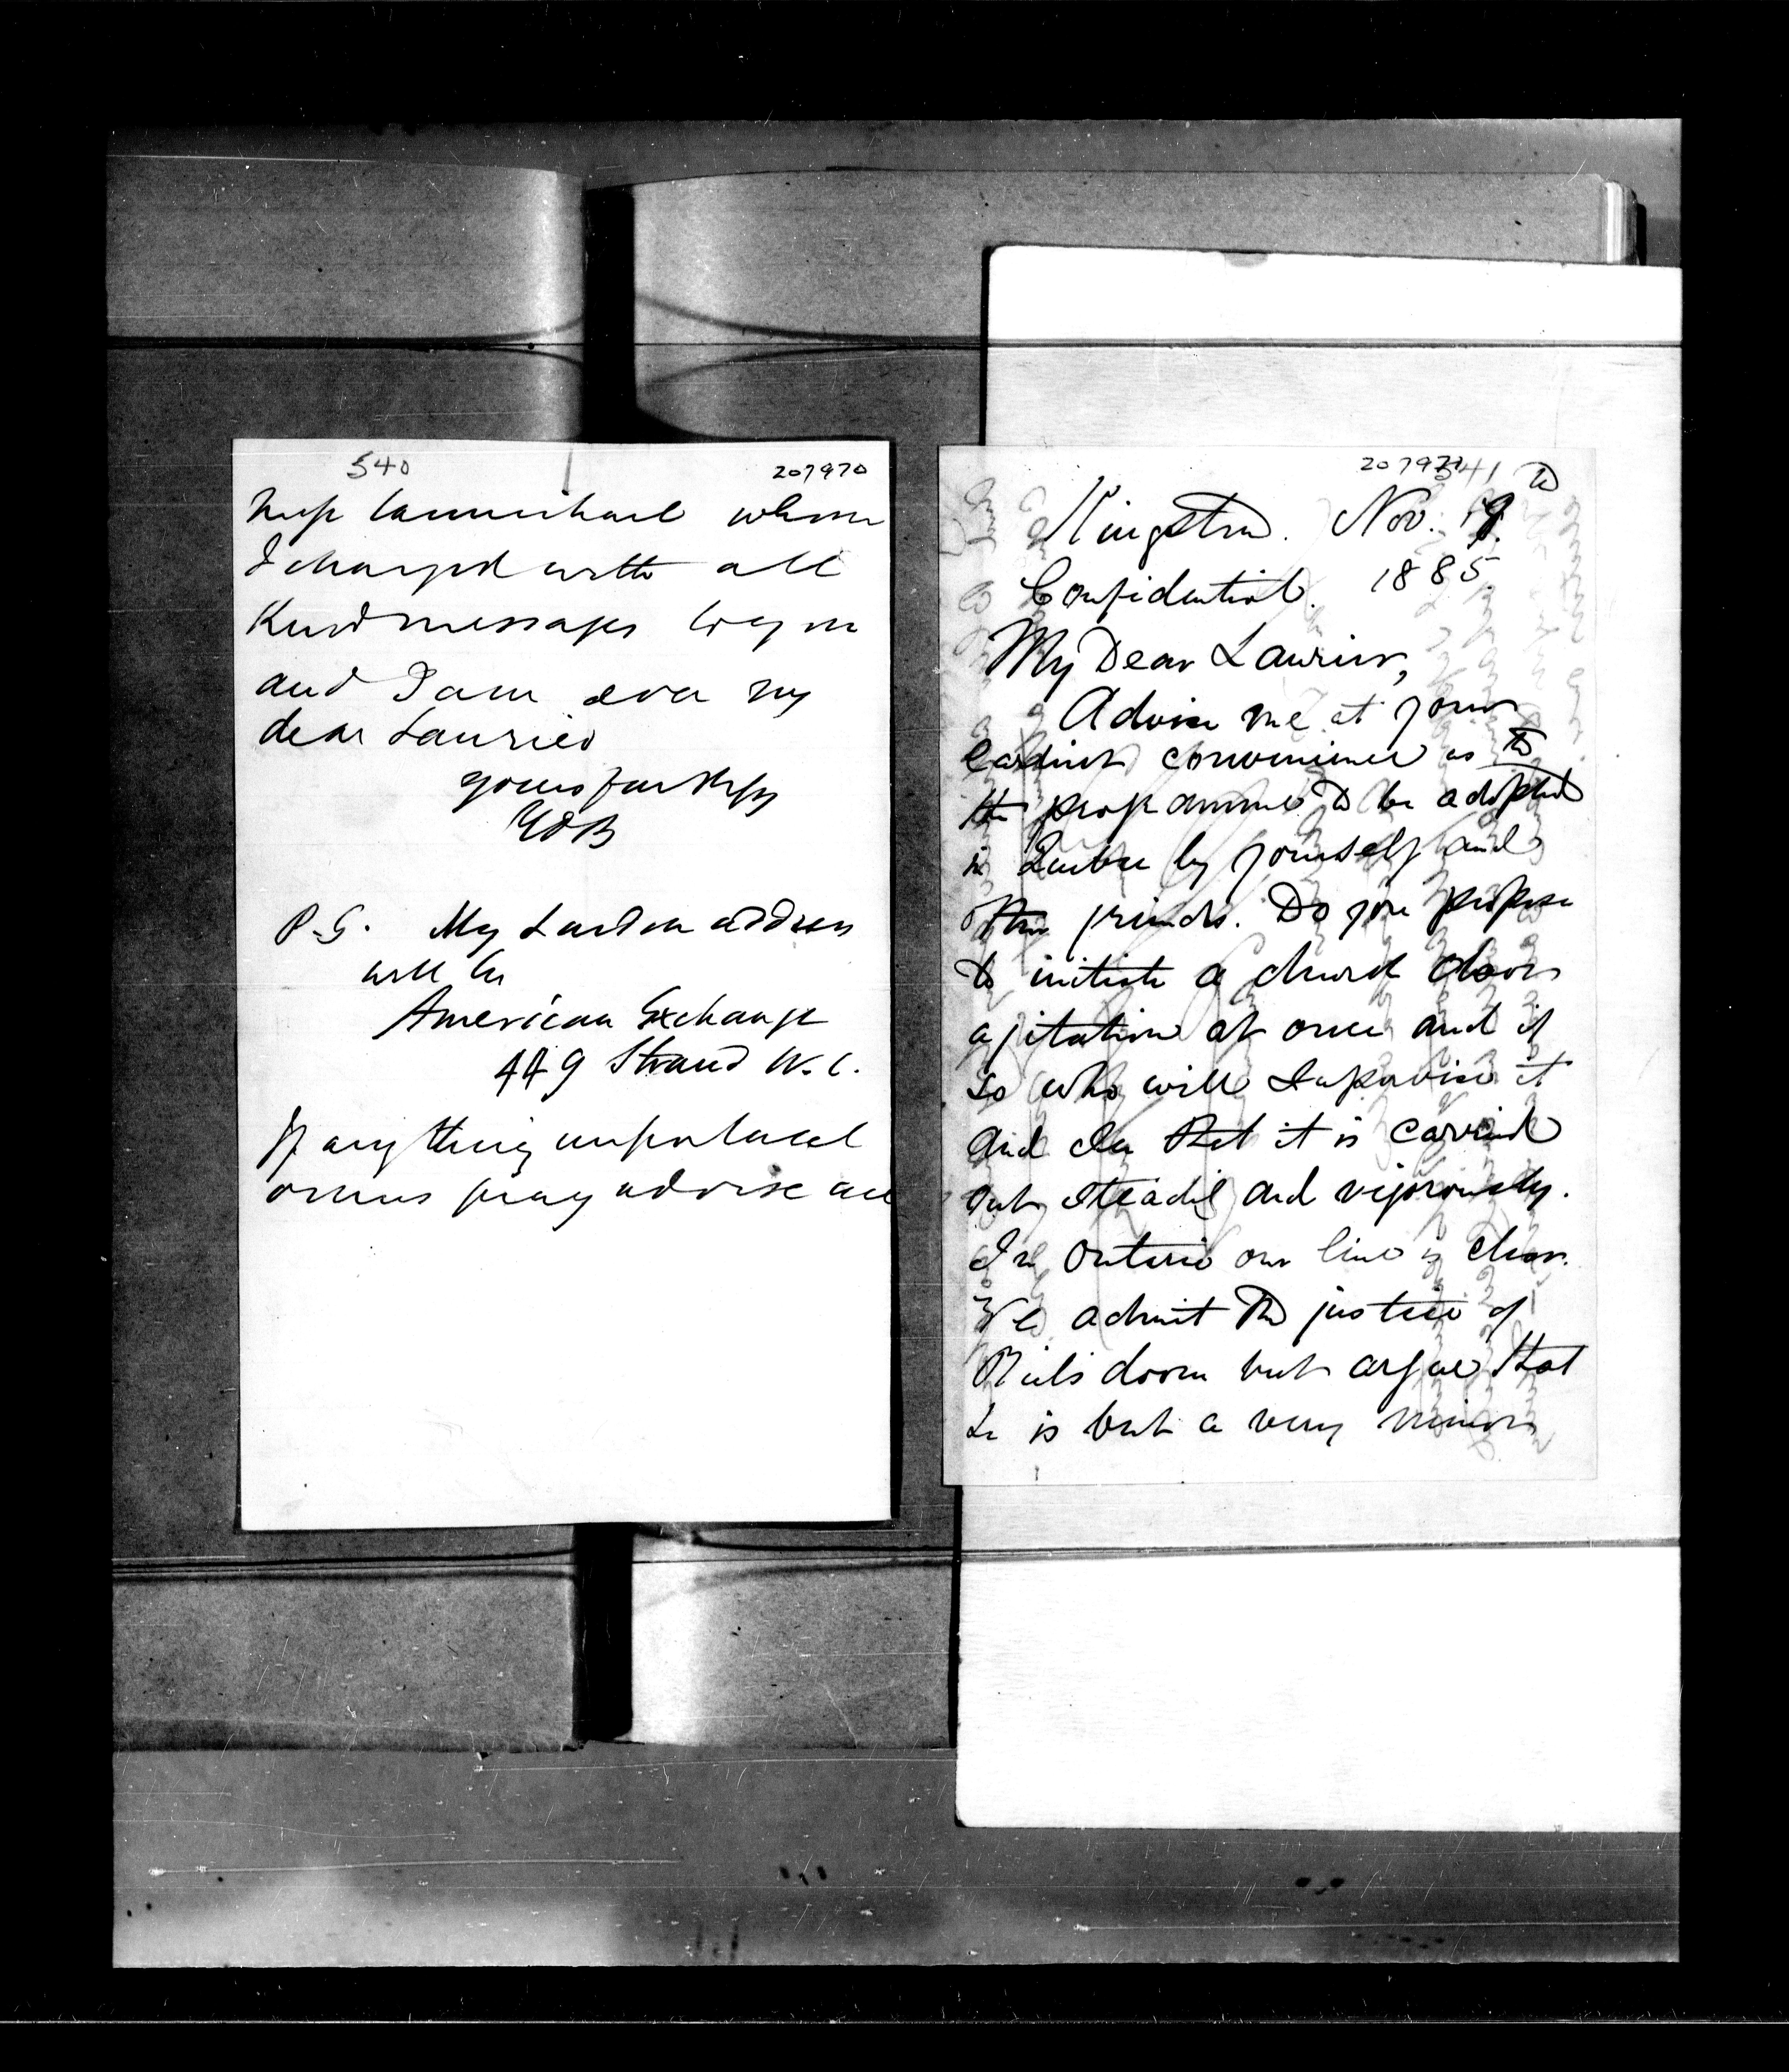 540
207970
Carmichael whom
I charged with all
Kind messages to you
and I am ever my
dear Laurier
yours faithfly
EB
P.S. My London address
will be
American Exchange
449 Strand W.C.
If anything important
occurs pray advise me
207971
541
Kingston. Nov. 19.
Confidential. 1885.
My Dear Laurier,
Advise me at your
earliest convenience as to
the programme to be adopted
in Quebec by yourself and
other friends. Do you propose
to initiate a church doors
agitation at once and if
so who will supervise it
and see that it is carried
out steadily and vigorously.
In Ontario our line is clear.
We admit the justice of
Riel's doom but argue that
he is but a very minor